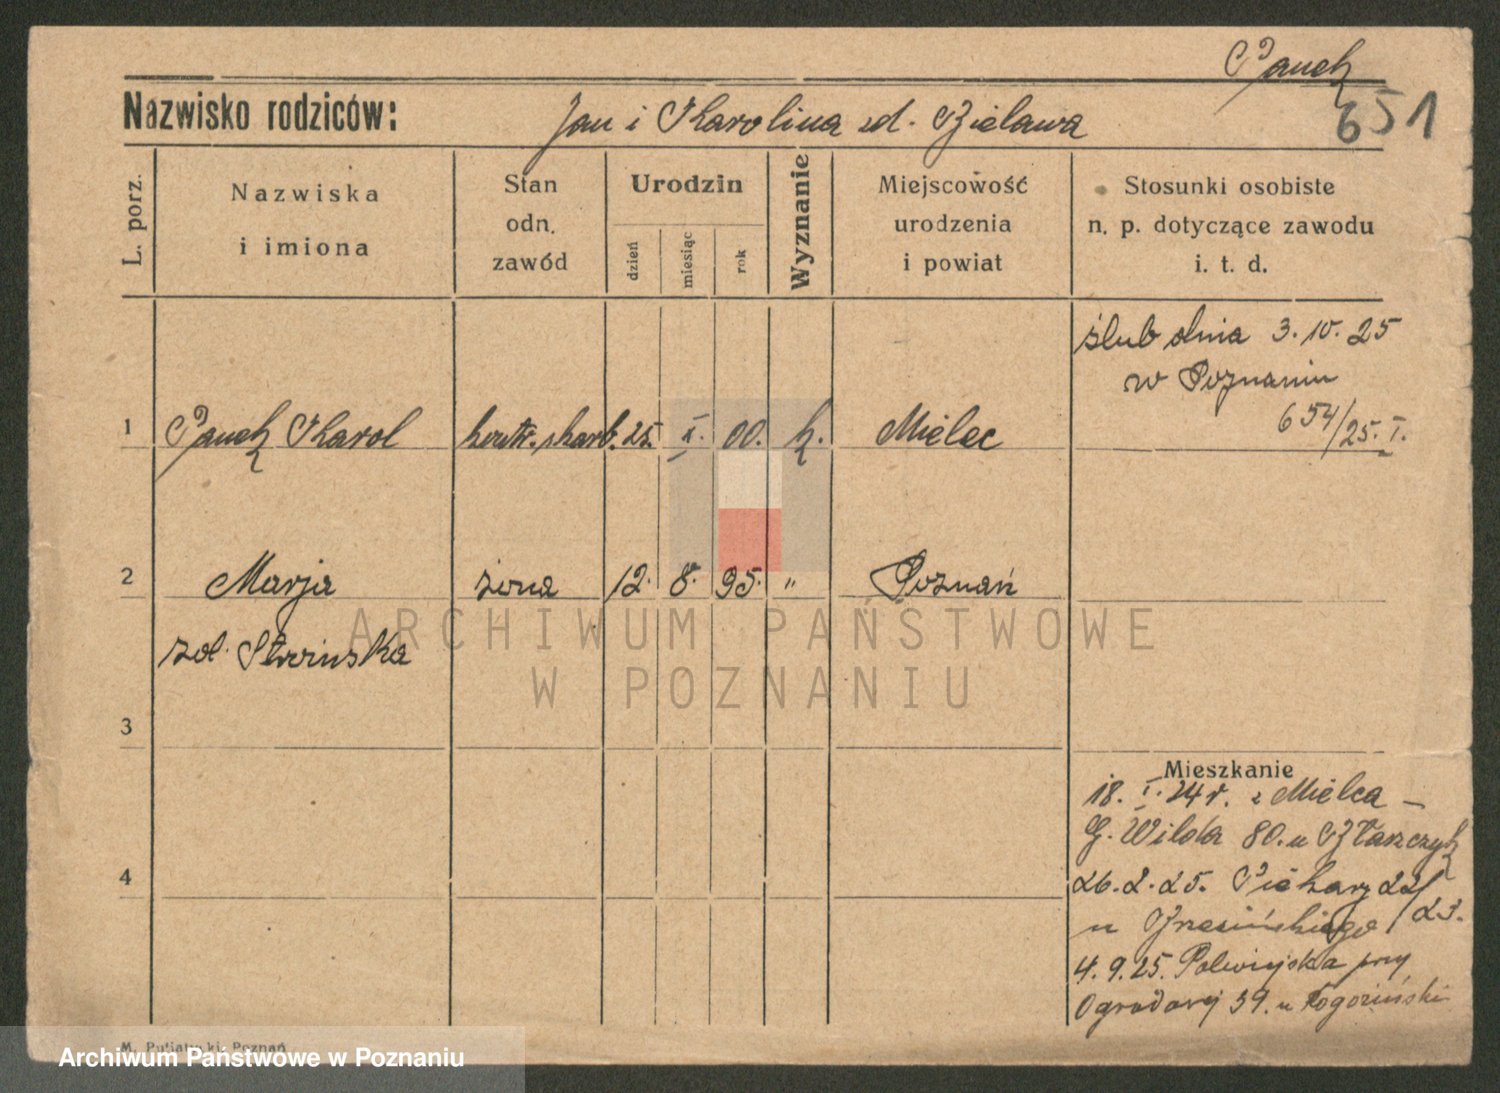 Panek
Nazwisko rodziców: Jan i Karolina zd. Bielawa
651
L. porz.
Nazwiska
i imiona
Stan
odn.
zawód
Urodzin
dzień
miesiąc
rok
Wyznanie
Miejscowość
urodzenia
i powiat
Stosunki osobiste
n. p. dotyczące zawodu
i. t. d.
ślub dnia 3. 10. 25
w Poznaniu
654/25. I.
1 Panek Karol kontr. skarb. 25. X. 00. k. Mielec
2 Marja żona 12. 8. 95. " Poznań
zd. Stroinska
3
4
Mieszkanie
18. I. 24 r. z Mielca –
G. Wilda 80. u Błaszczyk
26. 2. 25. Piekary 22/23.
u
4. 9. 25. Polwiejska przy
Ogrodowej 39. u
ARCHIWUM PAŃSTWOWE
W POZNANIU
M. Putiatycki, Poznań
Archiwum Państwowe w Poznaniu